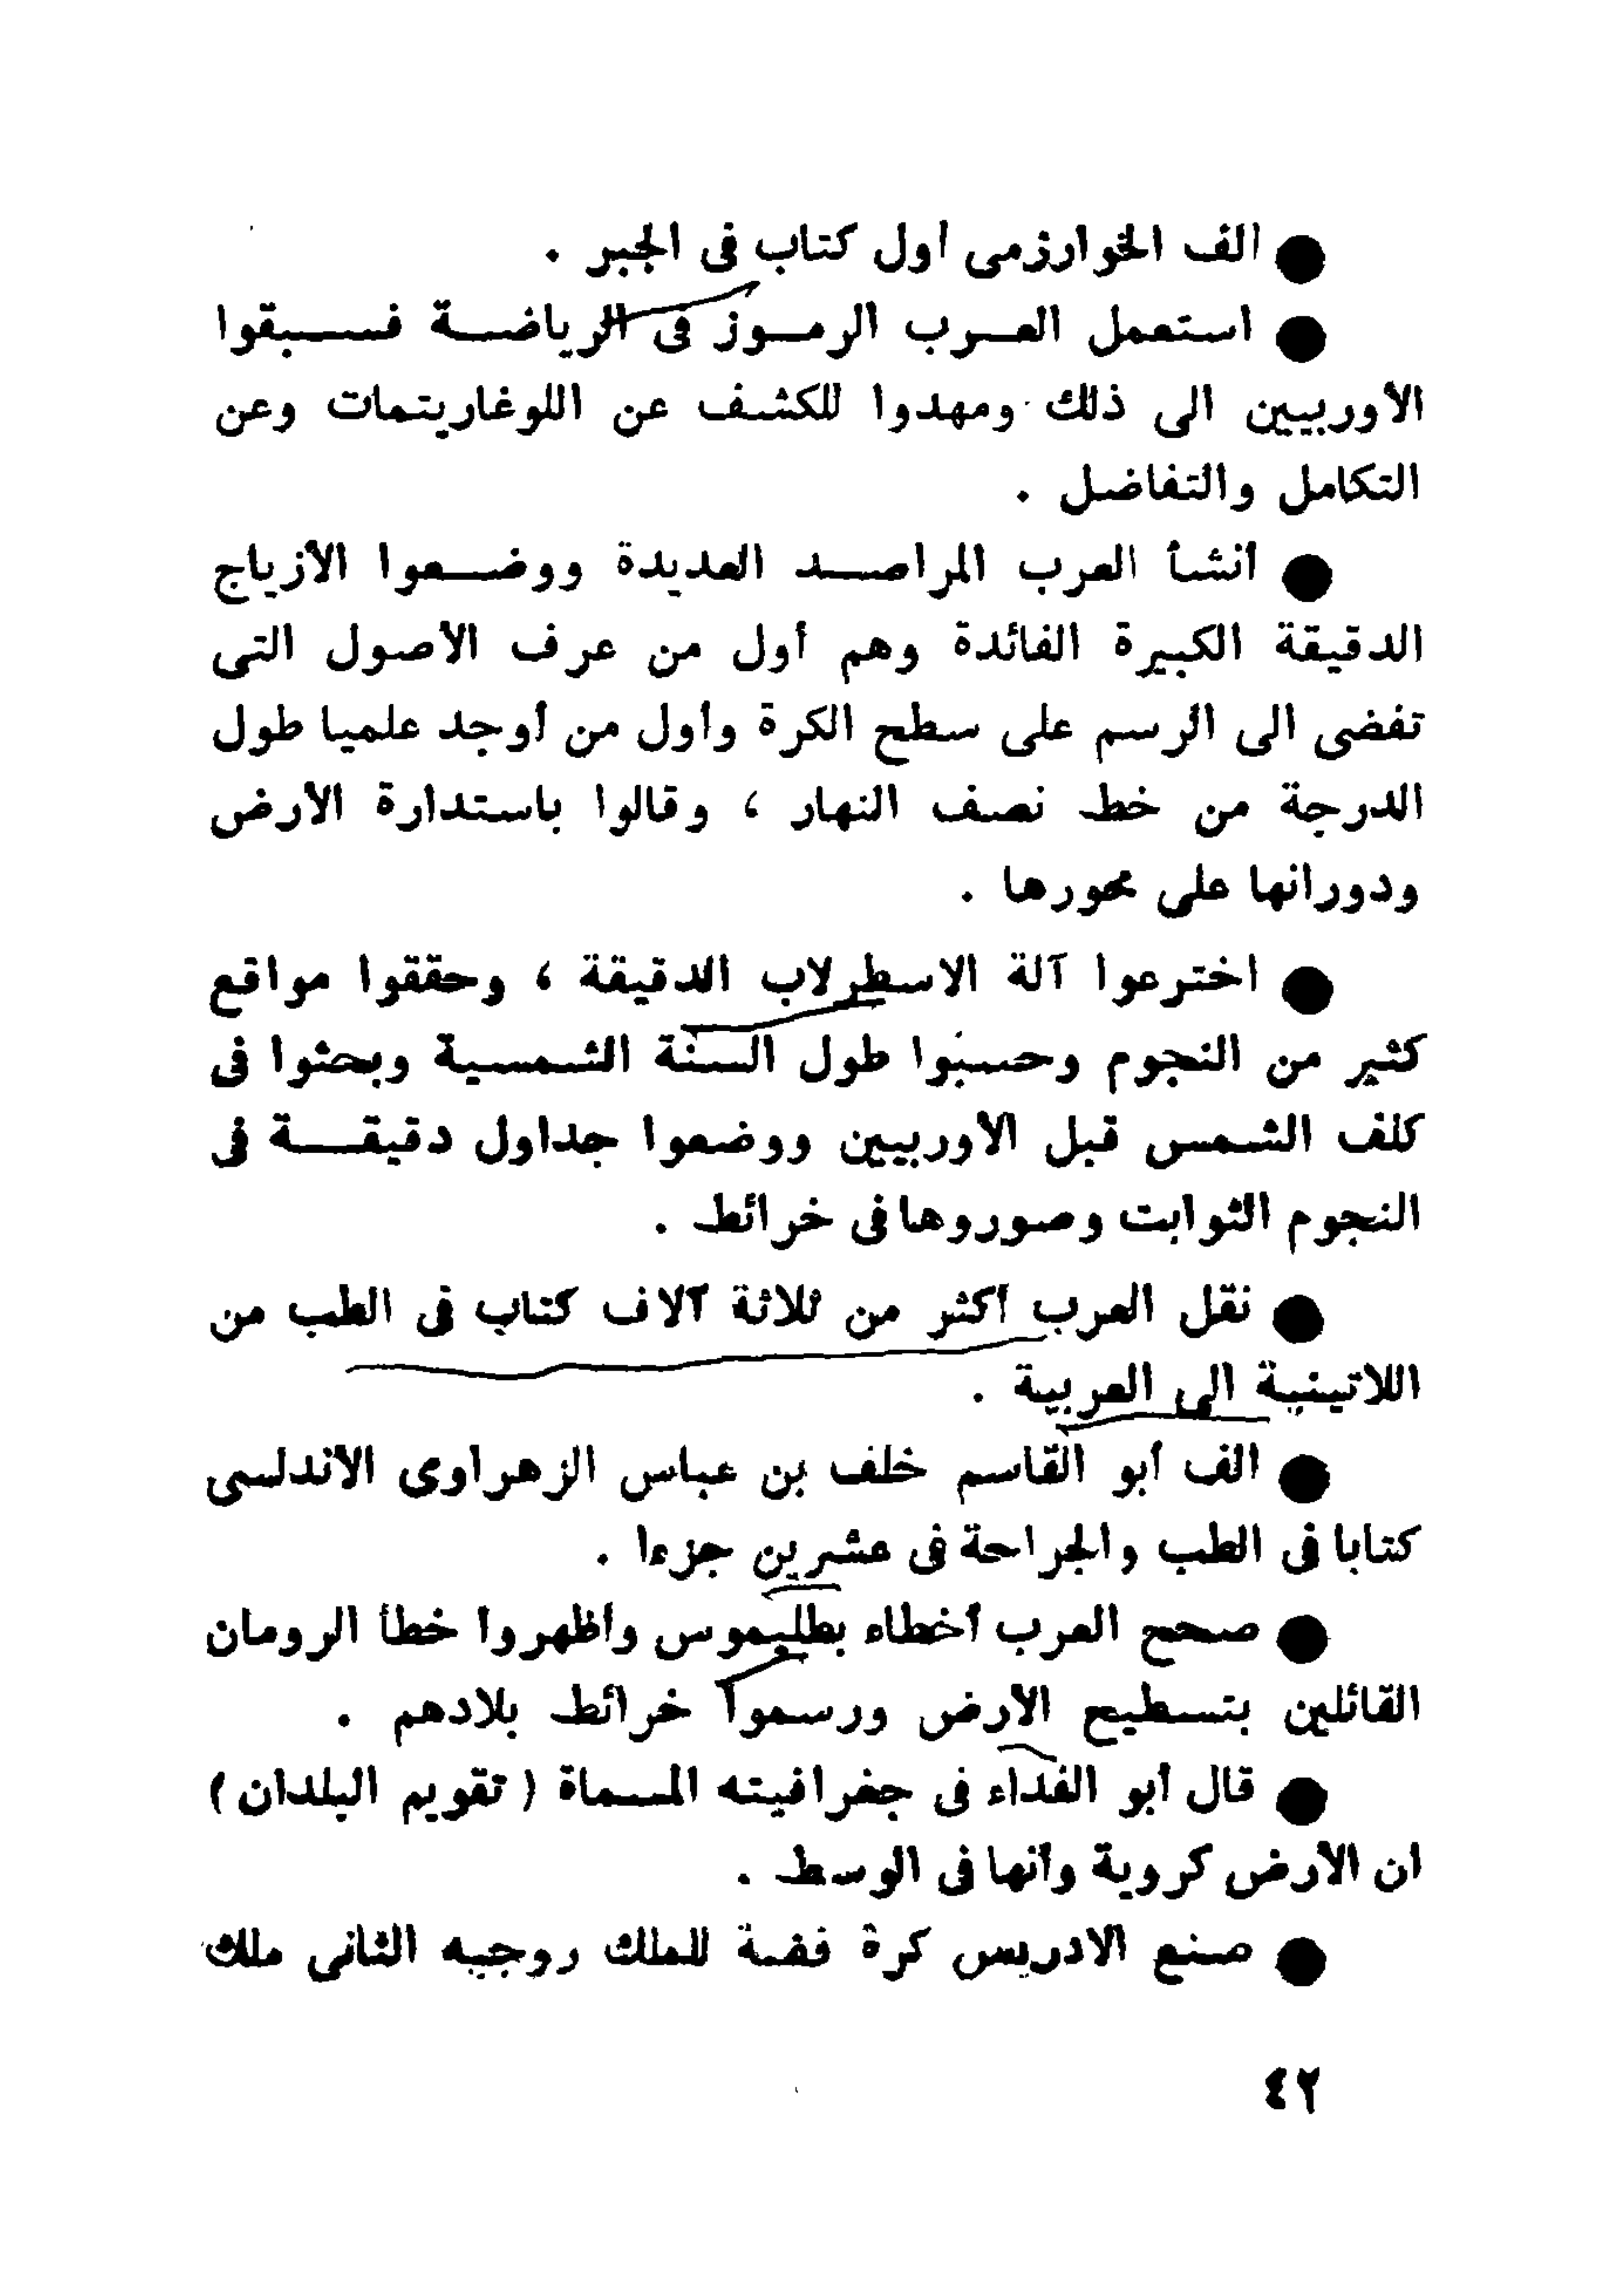 ● ألف الخوارزمى أول كتاب فى الجبر .
● استعمل العرب الرموز فى الرياضة فسبقوا
الأوربيين الى ذلك ومهدوا للكشف عن اللوغاريتمات وعن
التكامل والتفاضل .
● أنشأ العرب المراصد العديدة ووضعوا الأزياج
الدقيقة الكبيرة الفائدة وهم أول من عرف الأصول التى
تفضى الى الرسم على سطح الكرة وأول من أوجد علميا طول
الدرجة من خط نصف النهار ، وقالوا باستدارة الأرض
ودورانها على محورها .
● اخترعوا آلة الاسطرلاب الدقيقة ، وحققوا مواقع
كثير من النجوم وحسبوا طول السنة الشمسية وبحثوا فى
كلف الشمس قبل الأوربيين ووضعوا جداول دقيقة فى
النجوم الثوابت وصوروها فى خرائط .
● نقل العرب أكثر من ثلاثة آلاف كتاب فى الطب من
اللاتينية الى العربية .
● ألف أبو القاسم خلف بن عباس الزهراوى الأندلسى
كتابا فى الطب والجراحة فى عشرين جزءا .
● صحح العرب أخطاء بطليموس وأظهروا خطأ الرومان
القائلين بتسطيح الأرض ورسموا خرائط بلادهم .
● قال أبو الفداء فى جغرافيته المسماة ( تقويم البلدان )
ان الأرض كروية وأنها فى الوسط .
● صنع الادريس كرة فضة للملك روجيه الثانى ملك
٤٢